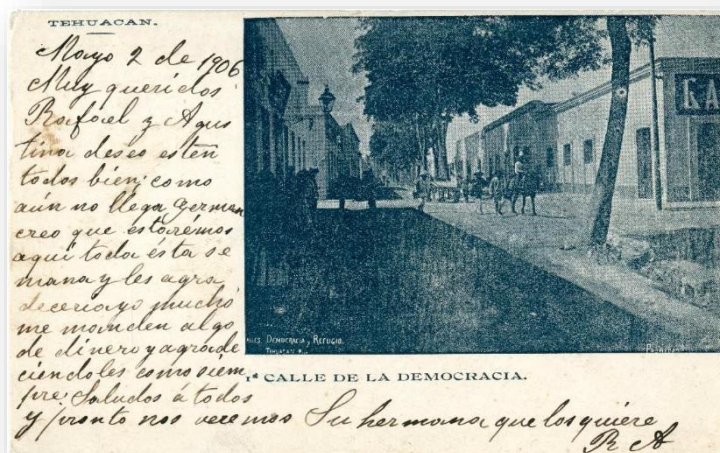 TEHUACAN.
Mayo 2 de 1906
Muy queridos
Rafael y Agus
tina deseo esten
todos bien; como
aún no llega German
creo que estarémos
aquí toda ésta se
mana y les agra
deceria yo mucho
me manden algo
de dinero y agrade
ciendoles como siem
pre. Saludos á todos
y pronto nos veremos Su hermana que los quiere
R A
LA
DEMOCRACIA, REFUGIO.
TEHUACAN
1ª CALLE DE LA DEMOCRACIA.